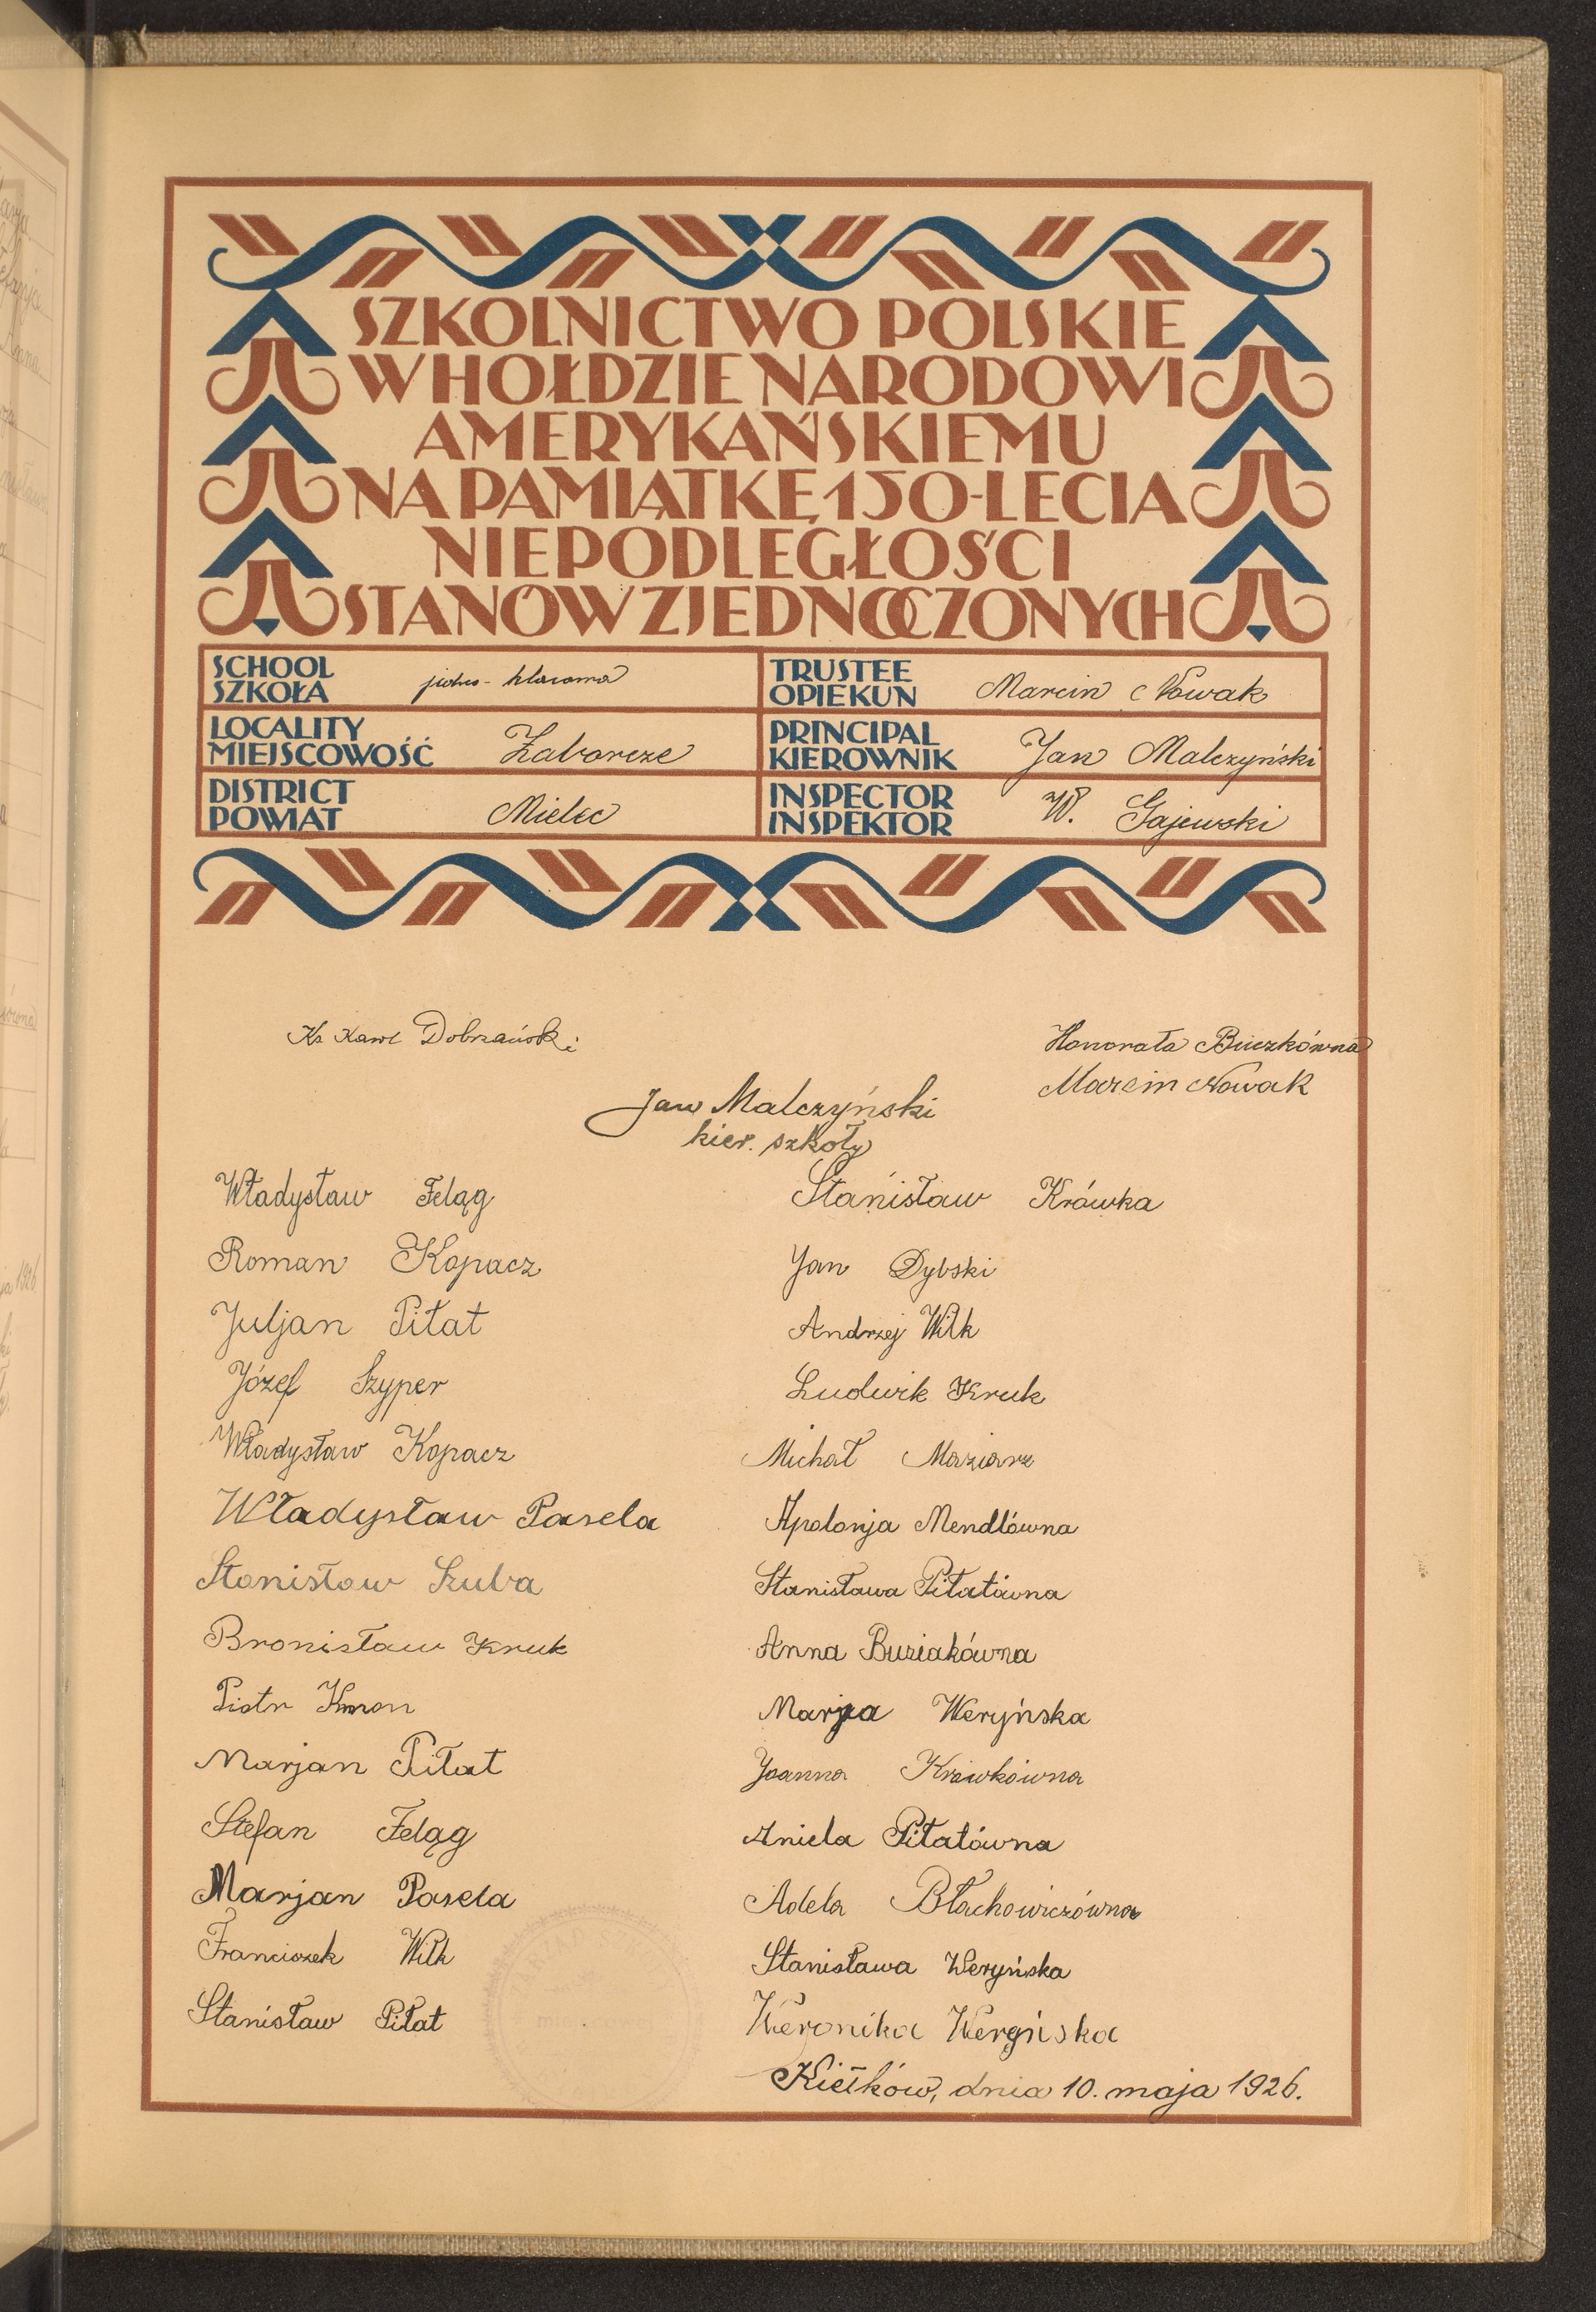 SZKOLNICTWO POLSKIE
W HOŁDZIE NARODOWI
AMERYKAŃSKIEMU
NA PAMIĄTKĘ 150-LECIA
NIEPODLEGŁOŚCI
STANÓW ZJEDNOCZONYCH
SCHOOL
SZKOŁA jedno-klasowa
TRUSTEE
OPIEKUN Marcin Nowak
LOCALITY
MIEJSCOWOŚĆ Zaborcze
PRINCIPAL
KIEROWNIK Jan Malczyński
DISTRICT
POWIAT Mielec
INSPECTOR
INSPEKTOR W. Gajewski
Ks Karol Dobrzański
Honorata Buczkówna
Marcin Nowak
Jan Malczyński
kier. szkoły
Władysław Feląg
Roman Kopacz
Juljan Piłat
Józef Szyper
Władysław Kopacz
Władysław Pasela
Stanisław Szuba
Bronisław Kruk
Piotr Kmon
Marjan Piłat
Stefan Feląg
Marjan Pasela
Franciszek Wilk
Stanisław Piłat
Stanisław Krówka
Jan Dybski
Andrzej Wilk
Ludwik Kruk
Michał Maziarz
Apolonja Mendlówna
Stanisława Piłatówna
Anna Buziakówna
Marja Weryńska
Joanna Krówkówna
Aniela Piłatówna
Adela Błachowiczówna
Stanisława Weryńska
Weronika Weryńska
Kiełków, dnia 10. maja 1926.